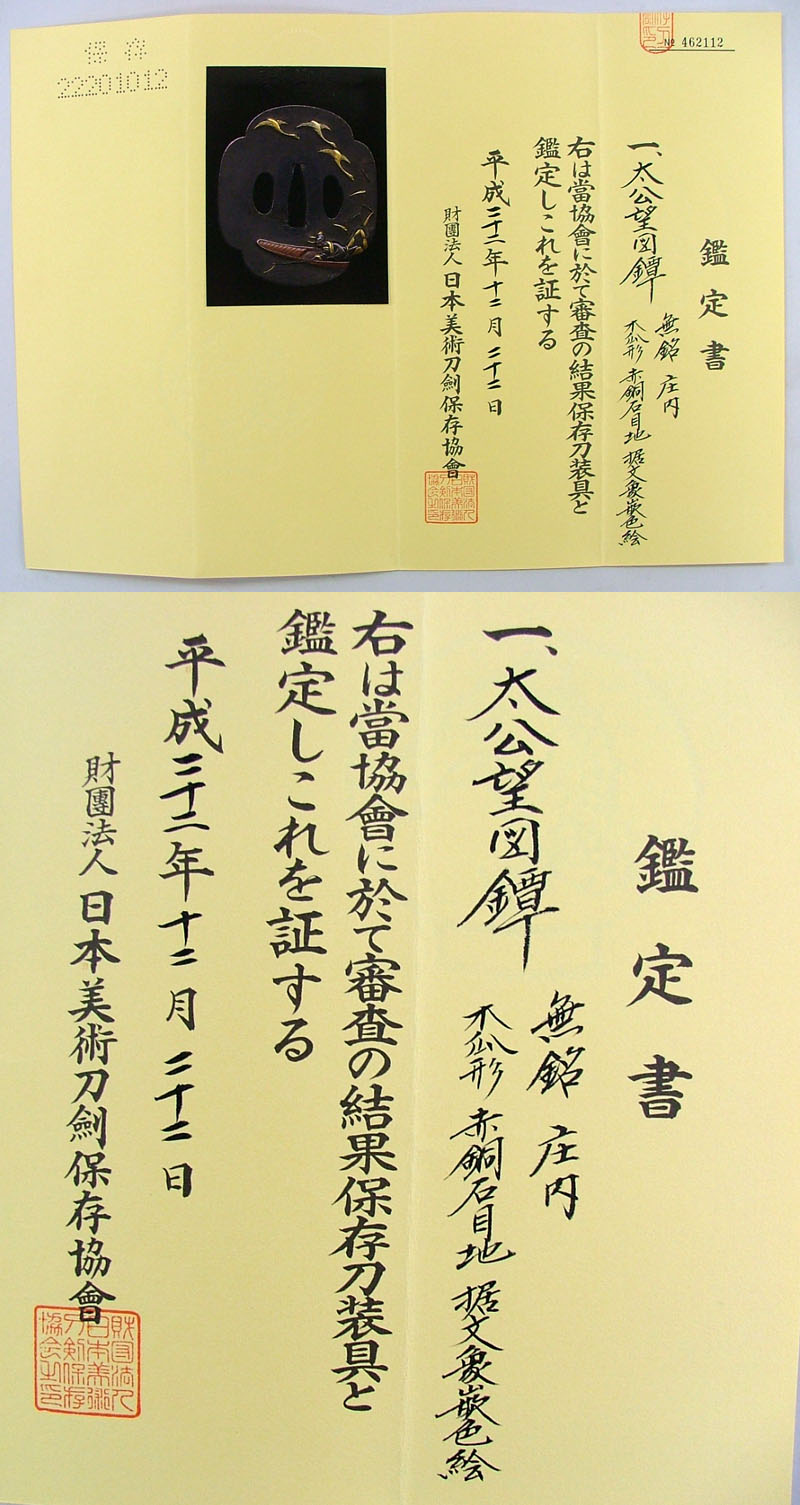 № 462112
鑑定書
一、太公望図鐔
無銘 庄内
木瓜形 赤銅石目地 据文象嵌色絵
右は當協會に於て審査の結果保存刀装具と
鑑定しこれを証する
平成二十二年十二月二十二日
財團法人 日本美術刀剣保存協會
財団法人
日本美術
刀剣保存
協会之印
保存
22201012
鑑定書
一、太公望図鐔
無銘 庄内
木瓜形 赤銅石目地 据文象嵌色絵
右は當協會に於て審査の結果保存刀装具と
鑑定しこれを証する
平成二十二年十二月二十二日
財團法人 日本美術刀剣保存協會
財団法人
日本美術
刀剣保存
協会之印